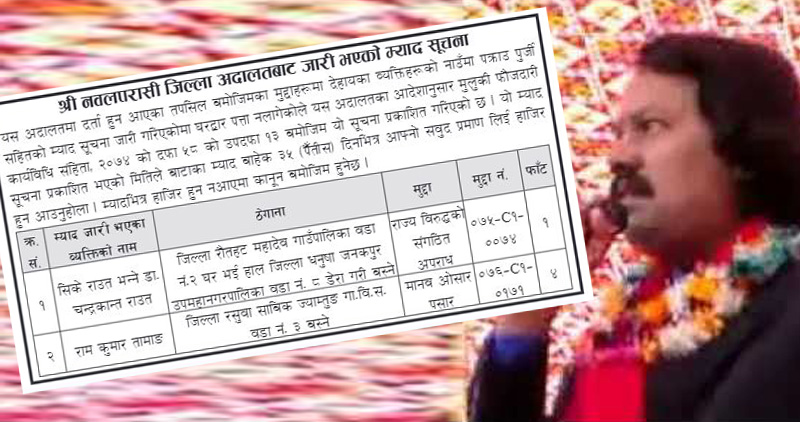 श्री नवलपरासी जिल्ला अदालतबाट जारी भएको म्याद सूचना
यस अदालतमा दर्ता हुन आएका तपसिल बमोजिमका मुद्दाहरूमा देहायका व्यक्तिहरूको नाउँमा पक्राउ पुर्जी
सहितको म्याद सूचना जारी गरिएकोमा घरद्वार पत्ता नलागेकोले यस अदालतका आदेशानुसार मुलुकी फौजदारी
कार्यविधि संहिता, २०७४ को दफा ५८ को उपदफा १३ बमोजिम यो सूचना प्रकाशित गरिएको छ । यो म्याद
सूचना प्रकाशित भएको मितिले बाटाका म्याद बाहेक ३५ (पैंतीस) दिनभित्र आफ्नो सवुद प्रमाण लिई हाजिर
हुन आउनुहोला । म्यादभित्र हाजिर हुन नआएमा कानून बमोजिम हुनेछ ।
क्र.सं. म्याद जारी भएका व्यक्तिको नाम ठेगाना मुद्दा मुद्दा नं. फाँट
१ सिके राउत भन्ने डा. चन्द्रकान्त राउत जिल्ला रौतहट महादेव गाउँपालिका वडा नं.२ घर भई हाल जिल्ला धनुषा जनकपुर उपमहानगरपालिका वडा नं. ८ डेरा गरी बस्ने राज्य विरुद्धको संगठित अपराध ०७५-C१-००७४ १
२ राम कुमार तामाङ जिल्ला रसुवा साबिक ज्याम्तुङ गा.वि.स. वडा नं. ३ बस्ने मानव ओसार पसार ०७६-C१-०१७१ ४